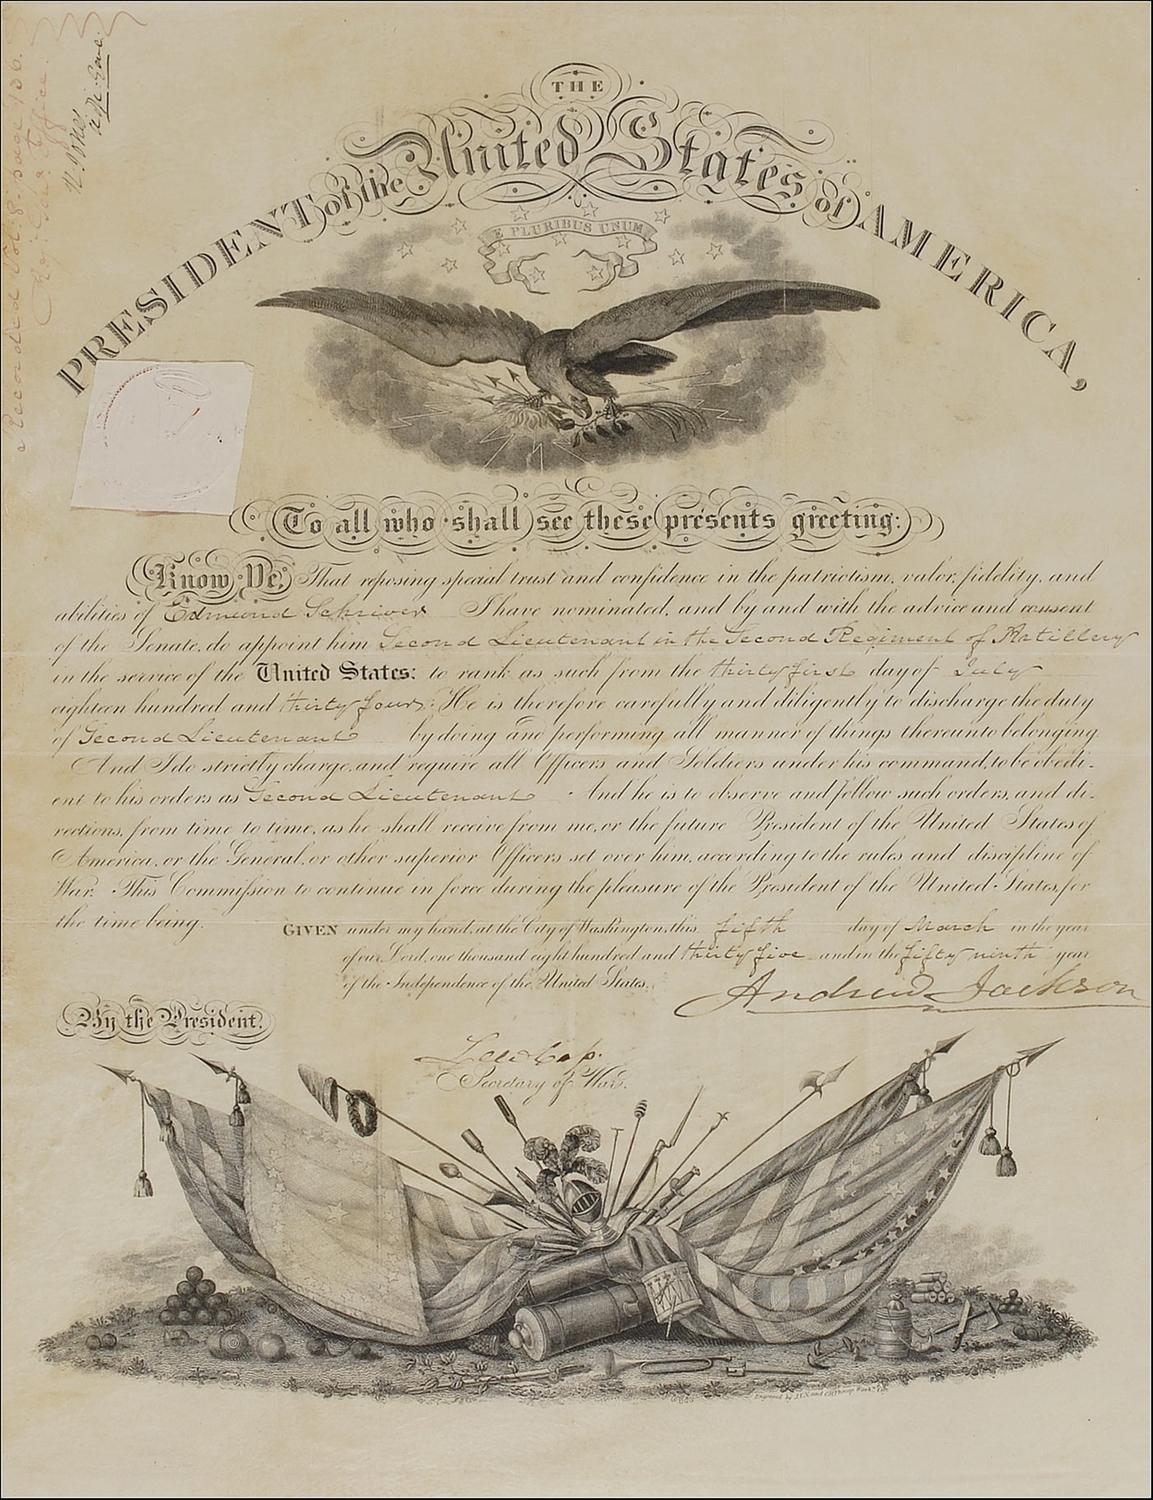 THE
PRESIDENT of the United States of AMERICA,
E PLURIBUS UNUM
Recorded Vol. 8. page 136.
Adj. Gen's. Office.
To all who shall see these presents greeting:
Know Ye, That reposing special trust and confidence in the patriotism, valor, fidelity, and
abilities of Edmund Schriver I have nominated, and by and with the advice and consent
of the Senate, do appoint him Second Lieutenant in the Second Regiment of Artillery
in the service of the United States: to rank as such from the thirty first day of July
eighteen hundred and thirty four. He is therefore carefully and diligently to discharge the duty
of Second Lieutenant by doing and performing all manner of things thereunto belonging.
And I do strictly charge, and require all Officers and Soldiers under his command, to be obedi-
ent to his orders as Second Lieutenant. And he is to observe and follow such orders, and di-
rections, from time to time, as he shall receive from me, or the future President of the United States of
America, or the General, or other superior Officers set over him, according to the rules and discipline of
War. This Commission to continue in force during the pleasure of the President of the United States, for
the time being.
GIVEN under my hand, at the City of Washington, this fifth day of March in the year
of our Lord, one thousand eight hundred and thirty five and in the fifty ninth year
of the Independence of the United States.
Andrew Jackson
By the President.
Lew Cass.
Secretary of War.
Engraved by